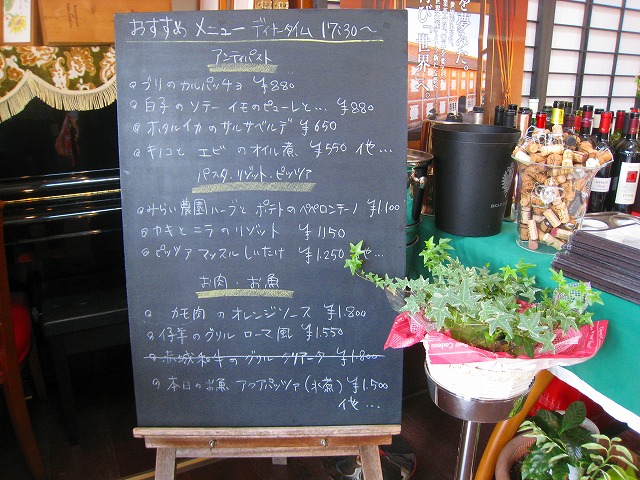 おすすめ メニュー ディナータイム 17:30〜
アンティパスト
ブリのカルパッチョ ¥880
白子のソテー イモのピューレと… ¥880
ホタルイカのサルサベルデ ¥650
キノコと エビのオイル煮 ¥550 他…
パスタ・リゾット・ピッツァ
みらい農園ハーブと ポテトのペペロンチーノ ¥1.100
カキとニラのリゾット ¥1150
ピッツァ マッスルしいたけ ¥1.250 他…
お肉・お魚
カモ肉のオレンジソース ¥1.800
仔羊のグリル ローマ風 ¥1.550
赤城和牛のグリル タリアータ ¥1.800
本日のお魚 アクアパッツァ(水煮) ¥1.500
他…